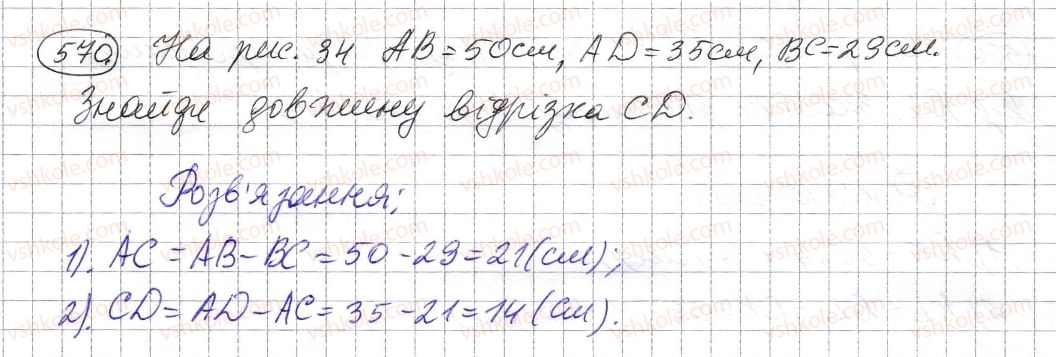 570. На рис. 34 AB = 50 см, AD = 35 см, BC = 29 см.
Знайди довжину відрізка CD.
Розв'язання;
1). AC = AB - BC = 50 - 29 = 21 (см);
2). CD = AD - AC = 35 - 21 = 14 (см).